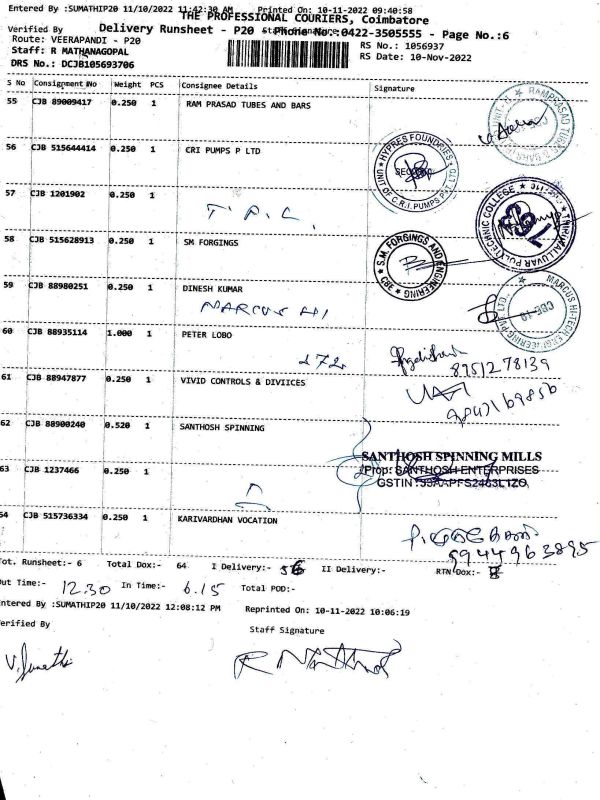 Entered By :SUMATHIP20 11/10/2022 11:42:30 AM Printed On: 10-11-2022 09:40:58
THE PROFESSIONAL COURIERS, Coimbatore
Verified By Delivery Runsheet - P20 Staff Signature Phone No:0422-3505555 - Page No.:6
Route: VEERAPANDI - P20 RS No.: 1056937
Staff: R MATHANAGOPAL RS Date: 10-Nov-2022
DRS No.: DCJB105693706
S No Consignment No Weight PCS Consignee Details Signature
55 CJB 89009417 0.250 1 RAM PRASAD TUBES AND BARS
56 CJB 515644414 0.250 1 CRI PUMPS P LTD
57 CJB 1201902 0.250 1
T.P.C.
58 CJB 515628913 0.250 1 SM FORGINGS
59 CJB 88980251 0.250 1 DINESH KUMAR
MARCUS HI
60 CJB 88935114 1.000 1 PETER LOBO
272
8951278139
61 CJB 88947877 0.250 1 VIVID CONTROLS & DIVIICES
62 CJB 88900240 0.520 1 SANTHOSH SPINNING
SANTHOSH SPINNING MILLS
63 CJB 1237466 0.250 1 Prop: SANTHOSH ENTERPRISES
54 CJB 515736334 0.250 1 KARIVARDHAN VOCATION
9944963895
Tot. Runsheet:- 6 Total Dox:- 64 I Delivery:- II Delivery:- RTN Dox:-
Out Time:- 12.30 In Time:- 6.15 Total POD:-
Entered By :SUMATHIP20 11/10/2022 12:08:12 PM Reprinted On: 10-11-2022 10:06:19
Verified By Staff Signature